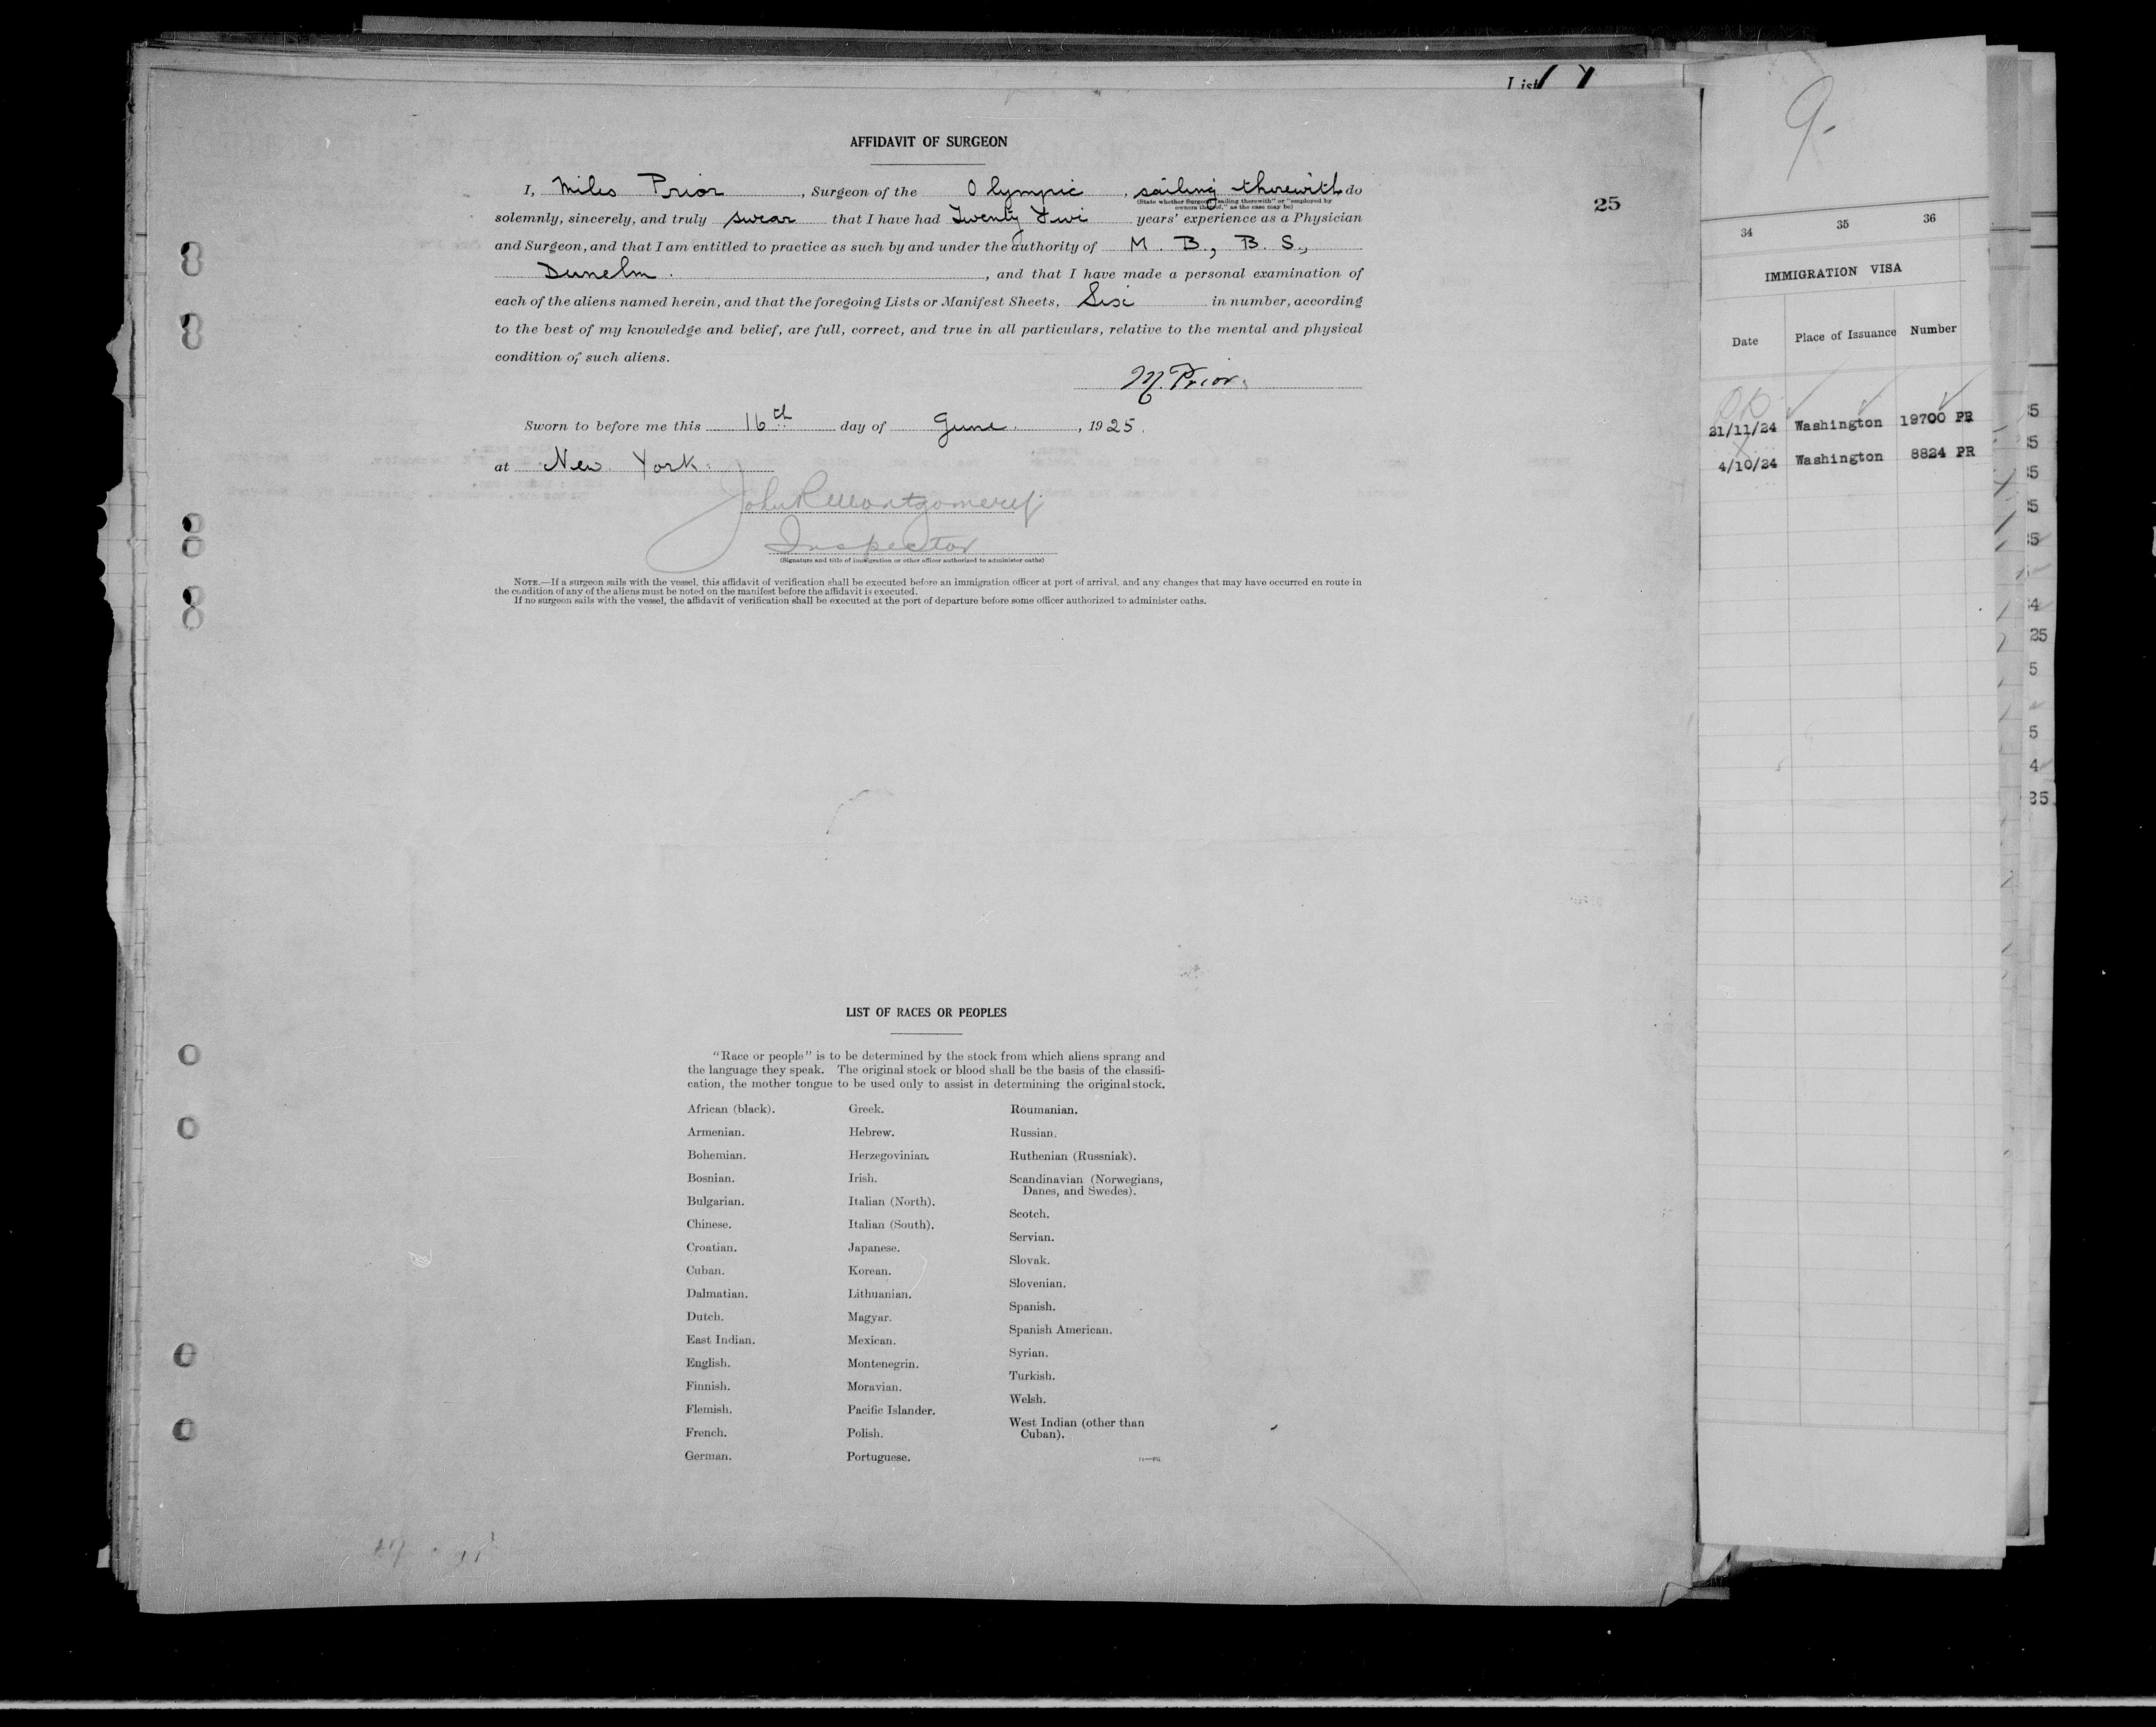 List
AFFIDAVIT OF SURGEON
I, Miles Prior, Surgeon of the Olympic, sailing therewith do
(State whether Surgeon "sailing therewith" or "employed by
owners thereof," as the case may be)
solemnly, sincerely, and truly swear that I have had Twenty years' experience as a Physician
and Surgeon, and that I am entitled to practice as such by and under the authority of M. B., B. S.,
Dunelm., and that I have made a personal examination of
each of the aliens named herein, and that the foregoing Lists or Manifest Sheets, Six in number, according
to the best of my knowledge and belief, are full, correct, and true in all particulars, relative to the mental and physical
condition of such aliens.
M. Prior.
Sworn to before me this 16th day of June., 1925.
at New York.
John R Montgomery
Inspector
(Signature and title of immigration or other officer authorized to administer oaths)
NOTE.—If a surgeon sails with the vessel, this affidavit of verification shall be executed before an immigration officer at port of arrival, and any changes that may have occurred en route in
the condition of any of the aliens must be noted on the manifest before the affidavit is executed.
If no surgeon sails with the vessel, the affidavit of verification shall be executed at the port of departure before some officer authorized to administer oaths.
LIST OF RACES OR PEOPLES
"Race or people" is to be determined by the stock from which aliens sprang and
the language they speak. The original stock or blood shall be the basis of the classifi-
cation, the mother tongue to be used only to assist in determining the original stock.
African (black).
Armenian.
Bohemian.
Bosnian.
Bulgarian.
Chinese.
Croatian.
Cuban.
Dalmatian.
Dutch.
East Indian.
English.
Finnish.
Flemish.
French.
German.
Greek.
Hebrew.
Herzegovinian.
Irish.
Italian (North).
Italian (South).
Japanese.
Korean.
Lithuanian.
Magyar.
Mexican.
Montenegrin.
Moravian.
Pacific Islander.
Polish.
Portuguese.
Roumanian.
Russian.
Ruthenian (Russniak).
Scandinavian (Norwegians,
Danes, and Swedes).
Scotch.
Servian.
Slovak.
Slovenian.
Spanish.
Spanish American.
Syrian.
Turkish.
Welsh.
West Indian (other than
Cuban).
25
9.
34 35 36
IMMIGRATION VISA
Date Place of Issuance Number
21/11/24 Washington 19700 PR
4/10/24 Washington 8824 PR
35
35
35
35
35
34
25
5
5
4
35